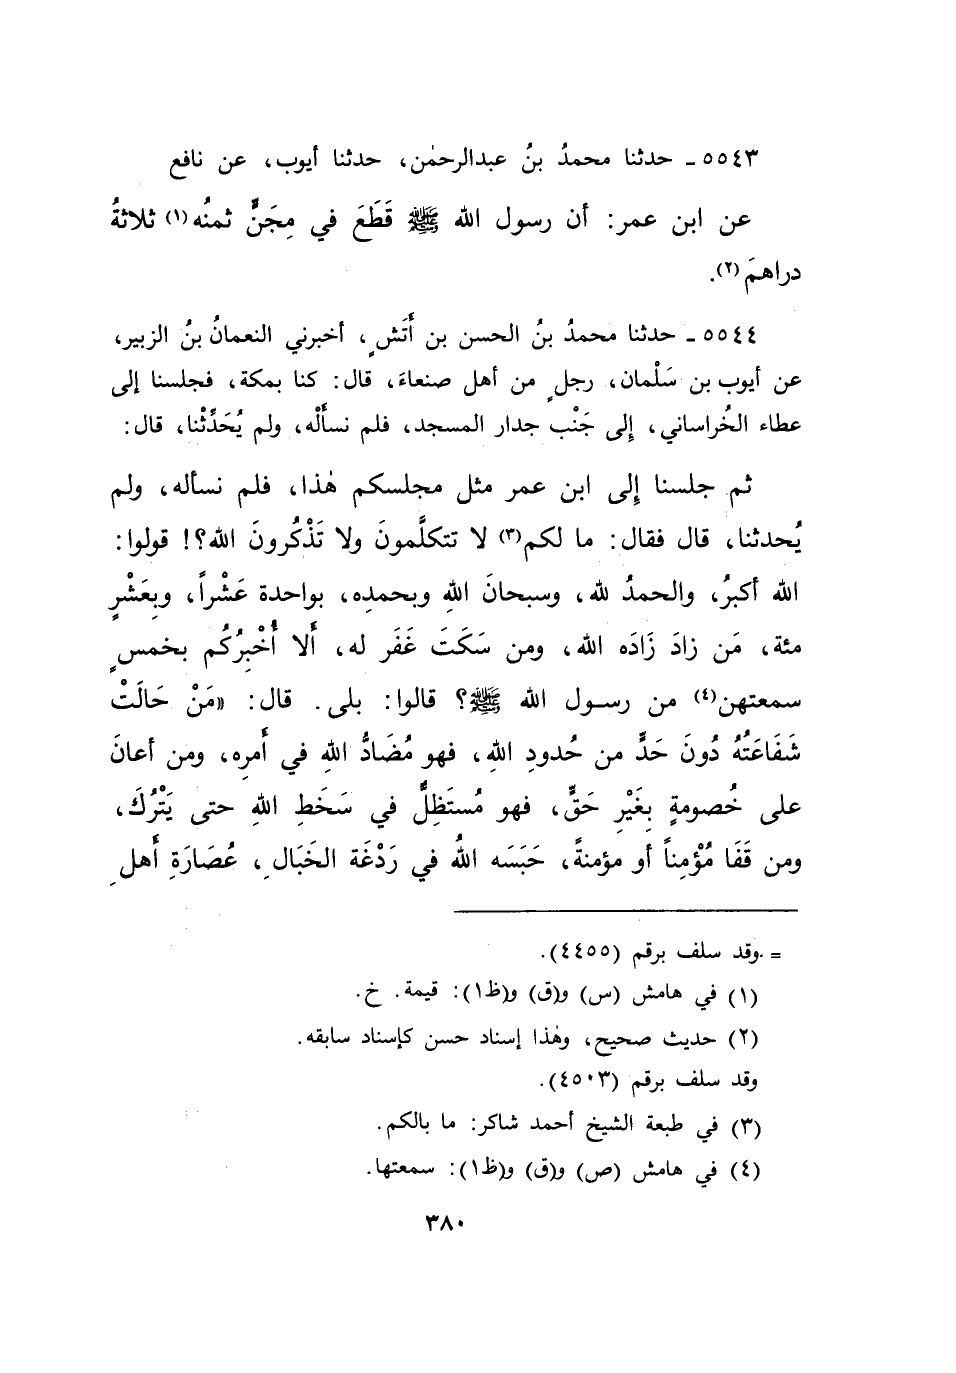 ٥٥٤٣ ـ حدثنا محمدُ بنُ عبدالرحمٰن، حدثنا أيوب، عن نافع
عن ابن عمر: أن رسول الله ﷺ قَطَعَ في مِجَنٍّ ثمنُه(١) ثلاثةُ
دراهمَ(٢).
٥٥٤٤ ـ حدثنا محمدُ بنُ الحسن بن أَتَشٍ، أخبرني النعمانُ بنُ الزبير،
عن أيوب بن سَلْمان، رجلٍ من أهل صنعاءَ، قال: كنا بمكة، فجلسنا إلى
عطاء الخُراساني، إلى جَنْب جدار المسجد، فلم نسأَلْه، ولم يُحَدِّثْنا، قال:
ثم جلسنا إلى ابن عمر مثل مجلسكم هٰذا، فلم نسأله، ولم
يُحدثنا، قال فقال: ما لكم(٣) لا تتكلَّمونَ ولا تَذْكُرونَ الله؟! قولوا:
الله أكبرُ، والحمدُ لله، وسبحانَ اللهِ وبحمدِه، بواحدة عَشْراً، وبِعَشْرٍ
مئة، مَن زادَ زَادَه الله، ومن سَكَتَ غَفَر له، أَلا أُخْبِرُكُم بخمسٍ
سمعتهن(٤) من رسول الله ﷺ؟ قالوا: بلى. قال: «مَنْ حَالَتْ
شَفَاعَتُهُ دُونَ حَدٍّ من حُدودِ اللهِ، فهو مُضَادُّ اللهِ في أَمرِه، ومن أعانَ
على خُصومةٍ بِغَيْرِ حَقٍّ، فهو مُستَظِلٌّ في سَخَطِ اللهِ حتى يَتْرُكَ،
ومن قَفَا مُؤْمِناً أو مؤمنةً، حَبَسَه اللهُ في رَدْغَة الخَبَالِ، عُصَارَةِ أَهلِ
= وقد سلف برقم (٤٤٥٥).
(١) في هامش (س) و(ق) و(ظ١): قيمة. خ.
(٢) حديث صحيح، وهٰذا إسناد حسن كإسناد سابقه.
وقد سلف برقم (٤٥٠٣).
(٣) في طبعة الشيخ أحمد شاكر: ما بالكم.
(٤) في هامش (ص) و(ق) و(ظ١): سمعتها.
٣٨٠